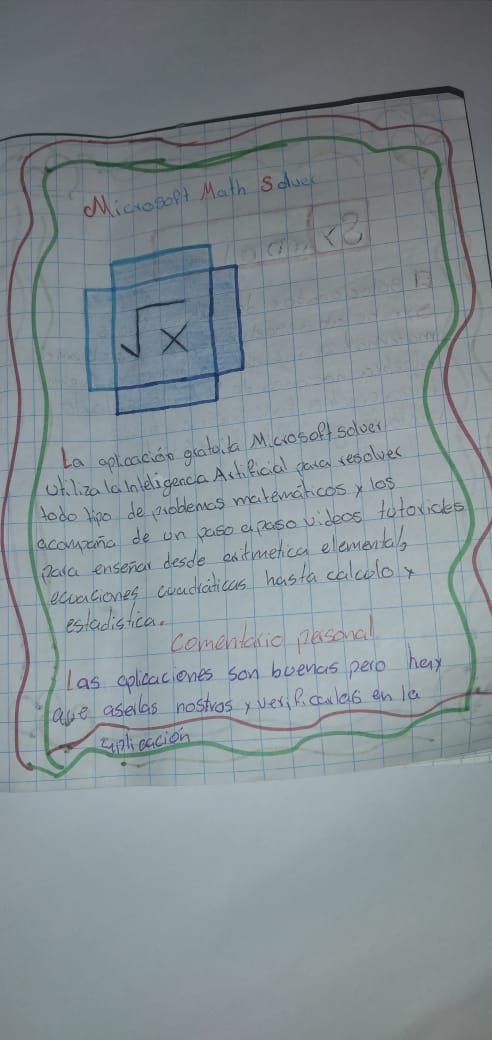 Microsoft Math Solver
√x
La aplicación gratuita Microsoft solver
utiliza la Inteligencia Artificial para resolver
todo tipo de problemas matemáticos y los
acompaña de un paso a paso videos tutoriales
para enseñar desde aritmetica elemental,
ecuaciones cuadráticas hasta calculo y
estadistica.
Comentario personal
Las aplicaciones son buenas pero hay
que aserlas nostros y verificarlas en la
aplicación